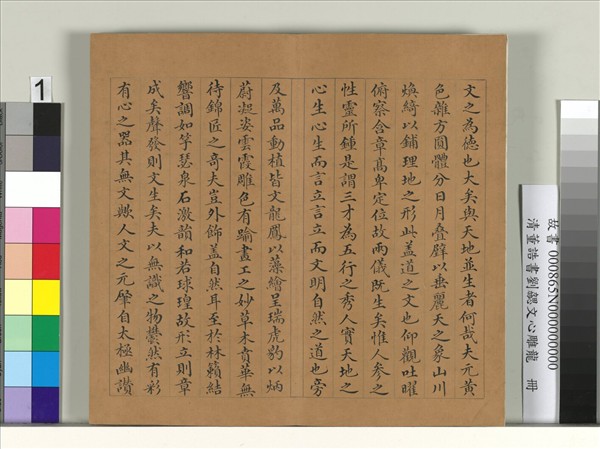 故書 000865N000000000
清董誥書劉勰文心雕龍 冊
文之為德也大矣與天地並生者何哉夫元黃
色雜方圓體分日月疊璧以垂麗天之象山川
煥綺以鋪理地之形此蓋道之文也仰觀吐曜
俯察含章髙卑定位故兩儀既生矣惟人參之
性靈所鍾是謂三才為五行之秀人實天地之
心生心生而言立言立而文明自然之道也旁
及萬品動植皆文龍鳳以藻繪呈瑞虎豹以炳
蔚凝姿雲霞雕色有踰畫工之妙草木賁華無
待錦匠之奇夫豈外飾蓋自然耳至於林籟結
響調如竽瑟泉石激韻和若球瑝故形立則章
成矣聲發則文生矣夫以無識之物鬱然有彩
有心之器其無文歟人文之元肇自太極幽讚
1